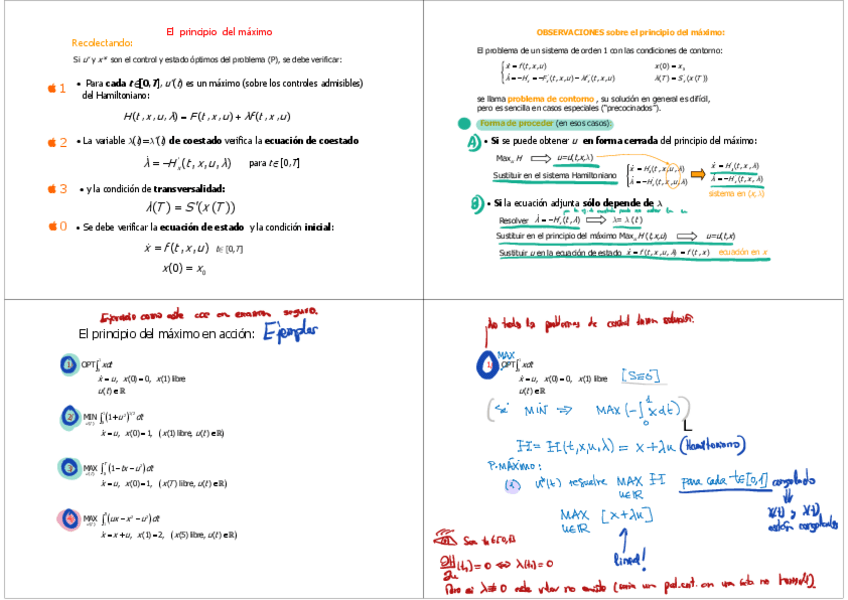 El principio del máximo
Recolectando:
Si u* y x* son el control y estado óptimos del problema (P), se debe verificar:
1 • Para cada t∈[0,T], u*(t) es un máximo (sobre los controles admisibles)
del Hamiltoniano:
H(t,x,u,λ) = F(t,x,u) + λf(t,x,u)
2 • La variable λ(t)=λ*(t) de coestado verifica la ecuación de coestado
λ̇ = −H'ₓ(t,x,u,λ) para t∈[0,T]
3 • y la condición de transversalidad:
λ(T) = S'(x(T))
0 • Se debe verificar la ecuación de estado y la condición inicial:
ẋ = f(t,x,u) t∈[0,T]
x(0) = x₀
OBSERVACIONES sobre el principio del máximo:
El problema de un sistema de orden 1 con las condiciones de contorno:
ẋ = f(t,x,u) x(0) = x₀
λ̇ = −Hₓ = −Fₓ(t,x,u) − λfₓ(t,x,u) λ(T) = Sₓ(x(T))
se llama problema de contorno, su solución en general es difícil,
pero es sencilla en casos especiales ("precocinados").
Forma de proceder (en esos casos)
A) • Si se puede obtener u en forma cerrada del principio del máximo:
Maxᵤ H ⇒ u=u(t,x,λ)
Sustituir en el sistema Hamiltoniano
ẋ = H(t,x,u,λ) ẋ = H(t,x,λ)
λ̇ = −Hₓ(t,x,u,λ) λ̇ = −Hₓ(t,x,λ)
sistema en (x,λ)
B) • Si la ecuación adjunta sólo depende de λ
Resolver λ̇ = −Hₓ(t,λ) ⇒ λ = λ(t)
Sustituir en el principio del máximo Maxᵤ H(t,x,u) ⇒ u=u(t,x)
Sustituir u en la ecuación de estado ẋ = f(t,x,u,λ) = f(t,x) ecuación en x
Ejercicio como este cae en examen seguro.
El principio del máximo en acción: Ejemplos
1 OPT ∫ xdt
ẋ = u, x(0) = 0, x(1) libre
u(t) ∈ ℝ
2 MIN ∫(1+u²)^1/2 dt
ẋ = u, x(0)=1, (x(1) libre, u(t)∈ℝ)
3 MAX ∫(1−tx−u²)dt
ẋ = u, x(0)=1, (x(T) libre, u(t)∈ℝ)
4 MAX ∫(ux−x²−u²)dt
ẋ = x+u, x(1)=2, (x(5) libre, u(t)∈ℝ)
No todos los problemas de control tienen solución.
MAX
1 OPT ∫ xdt
ẋ = u, x(0) = 0, x(1) libre [S≡0]
u(t) ∈ ℝ
(Si MIN ⇒ MAX(−∫₀¹ x dt))
H = H(t,x,u,λ) = x+λu (Hamiltoniano)
P. MÁXIMO:
(1) u*(t) resuelve MAX H para cada t∈[0,1] congelado
u∈ℝ
MAX [x+λu]
u∈ℝ
λ(t) y x(t)
están congelados
lineal!
Sea t₀∈[0,1]
∂H/∂u (t₀) = 0 ⇔ λ(t₀) = 0